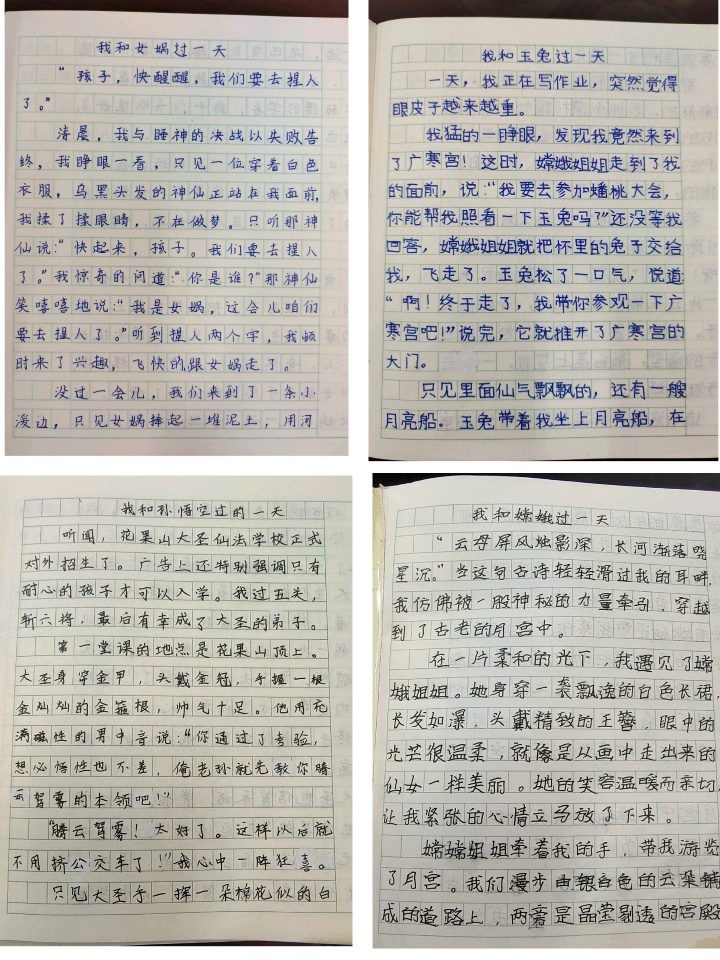 我和女娲过一天
“孩子，快醒醒，我们要去捏人
了。”
清晨，我与睡神的决战以失败告
终，我睁眼一看，只见一位穿着白色
衣服，乌黑头发的神仙正站在我面前，
我揉了揉眼睛，不在做梦。只听那神
仙说：“快起来，孩子。我们要去捏人
了。”我惊奇的问道：“你是谁？”那神仙
笑嘻嘻地说：“我是女娲，这会儿咱们
要去捏人了。”听到捏人两个字，我顿
时来了兴趣，飞快的跟女娲走了。
没过一会儿，我们来到了一条小
溪边，只见女娲捧起一堆泥土，用河
我和玉兔过一天
一天，我正在写作业，突然觉得
眼皮子越来越重。
我猛的一睁眼，发现我竟然来到
了广寒宫！这时，嫦娥姐姐走到了我
的面前，说：“我要去参加蟠桃大会，
你能帮我照看一下玉兔吗？”还没等我
回答，嫦娥姐姐就把怀里的兔子交给
我，飞走了。玉兔松了一口气，说道
“啊！终于走了，我带你参观一下广
寒宫吧！”说完，它就推开了广寒宫的
大门。
只见里面仙气飘飘的，还有一艘
月亮船。玉兔带着我坐上月亮船，在
我和孙悟空过的一天
听闻，花果山大圣仙法学校正式
对外招生了。广告上还特别强调只有
耐心的孩子才可以入学。我过五关，
斩六将，最后有幸成了大圣的弟子。
第一堂课的地点是花果山顶上。
大圣身穿金甲，头戴金冠，手握一根
金灿灿的金箍棍，帅气十足。他用充
满磁性的男中音说：“你通过了考验，
想必悟性也不差，俺老孙就先教你腾
云驾雾的本领吧！”
“腾云驾雾！太好了。这样以后就
不用挤公交车了！”我心中一阵狂喜。
只见大圣手一挥一朵棉花似的白
我和嫦娥过一天
“云母屏风烛影深，长河渐落晓
星沉。”当这句古诗轻轻滑过我的耳畔，
我仿佛被一股神秘的力量牵引，穿越
到了古老的月宫中。
在一片柔和的光下，我遇见了嫦
娥姐姐。她身穿一袭飘逸的白色长裙，
长发如瀑，头戴精致的玉簪，眼中的
光芒很温柔，就像是从画中走出来的
仙女一样美丽。她的笑容温暖而亲切，
让我紧张的心情立马放了下来。
嫦娥姐姐牵着我的手，带我游览
了月宫。我们漫步由银白色的云朵铺
成的道路上，两旁是晶莹剔透的宫殿